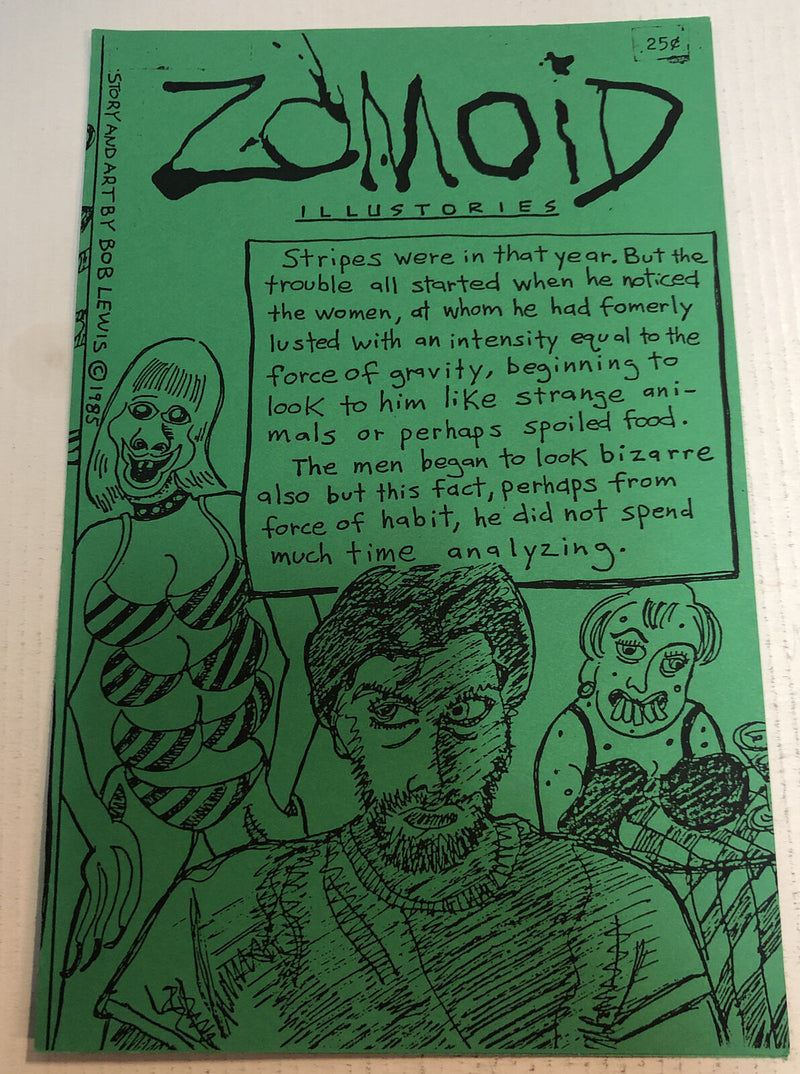 25¢
ZOMOID
ILLUSTORIES
STORY AND ART BY BOB LEWIS © 1985
Stripes were in that year. But the
trouble all started when he noticed
the women, at whom he had fomerly
lusted with an intensity equal to the
force of gravity, beginning to
look to him like strange ani-
mals or perhaps spoiled food.
The men began to look bizarre
also but this fact, perhaps from
force of habit, he did not spend
much time analyzing.